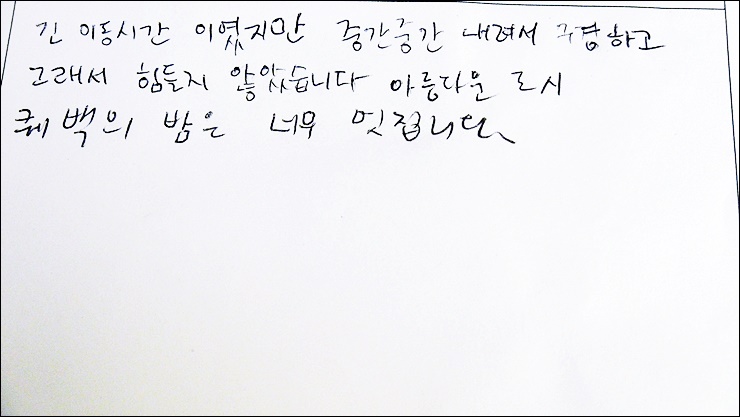 긴 이동시간 이였지만 중간중간 내려서 구경하고
그래서 힘들지 않았습니다 아름다운 도시
퀘백의 밤은 너무 멋집니다